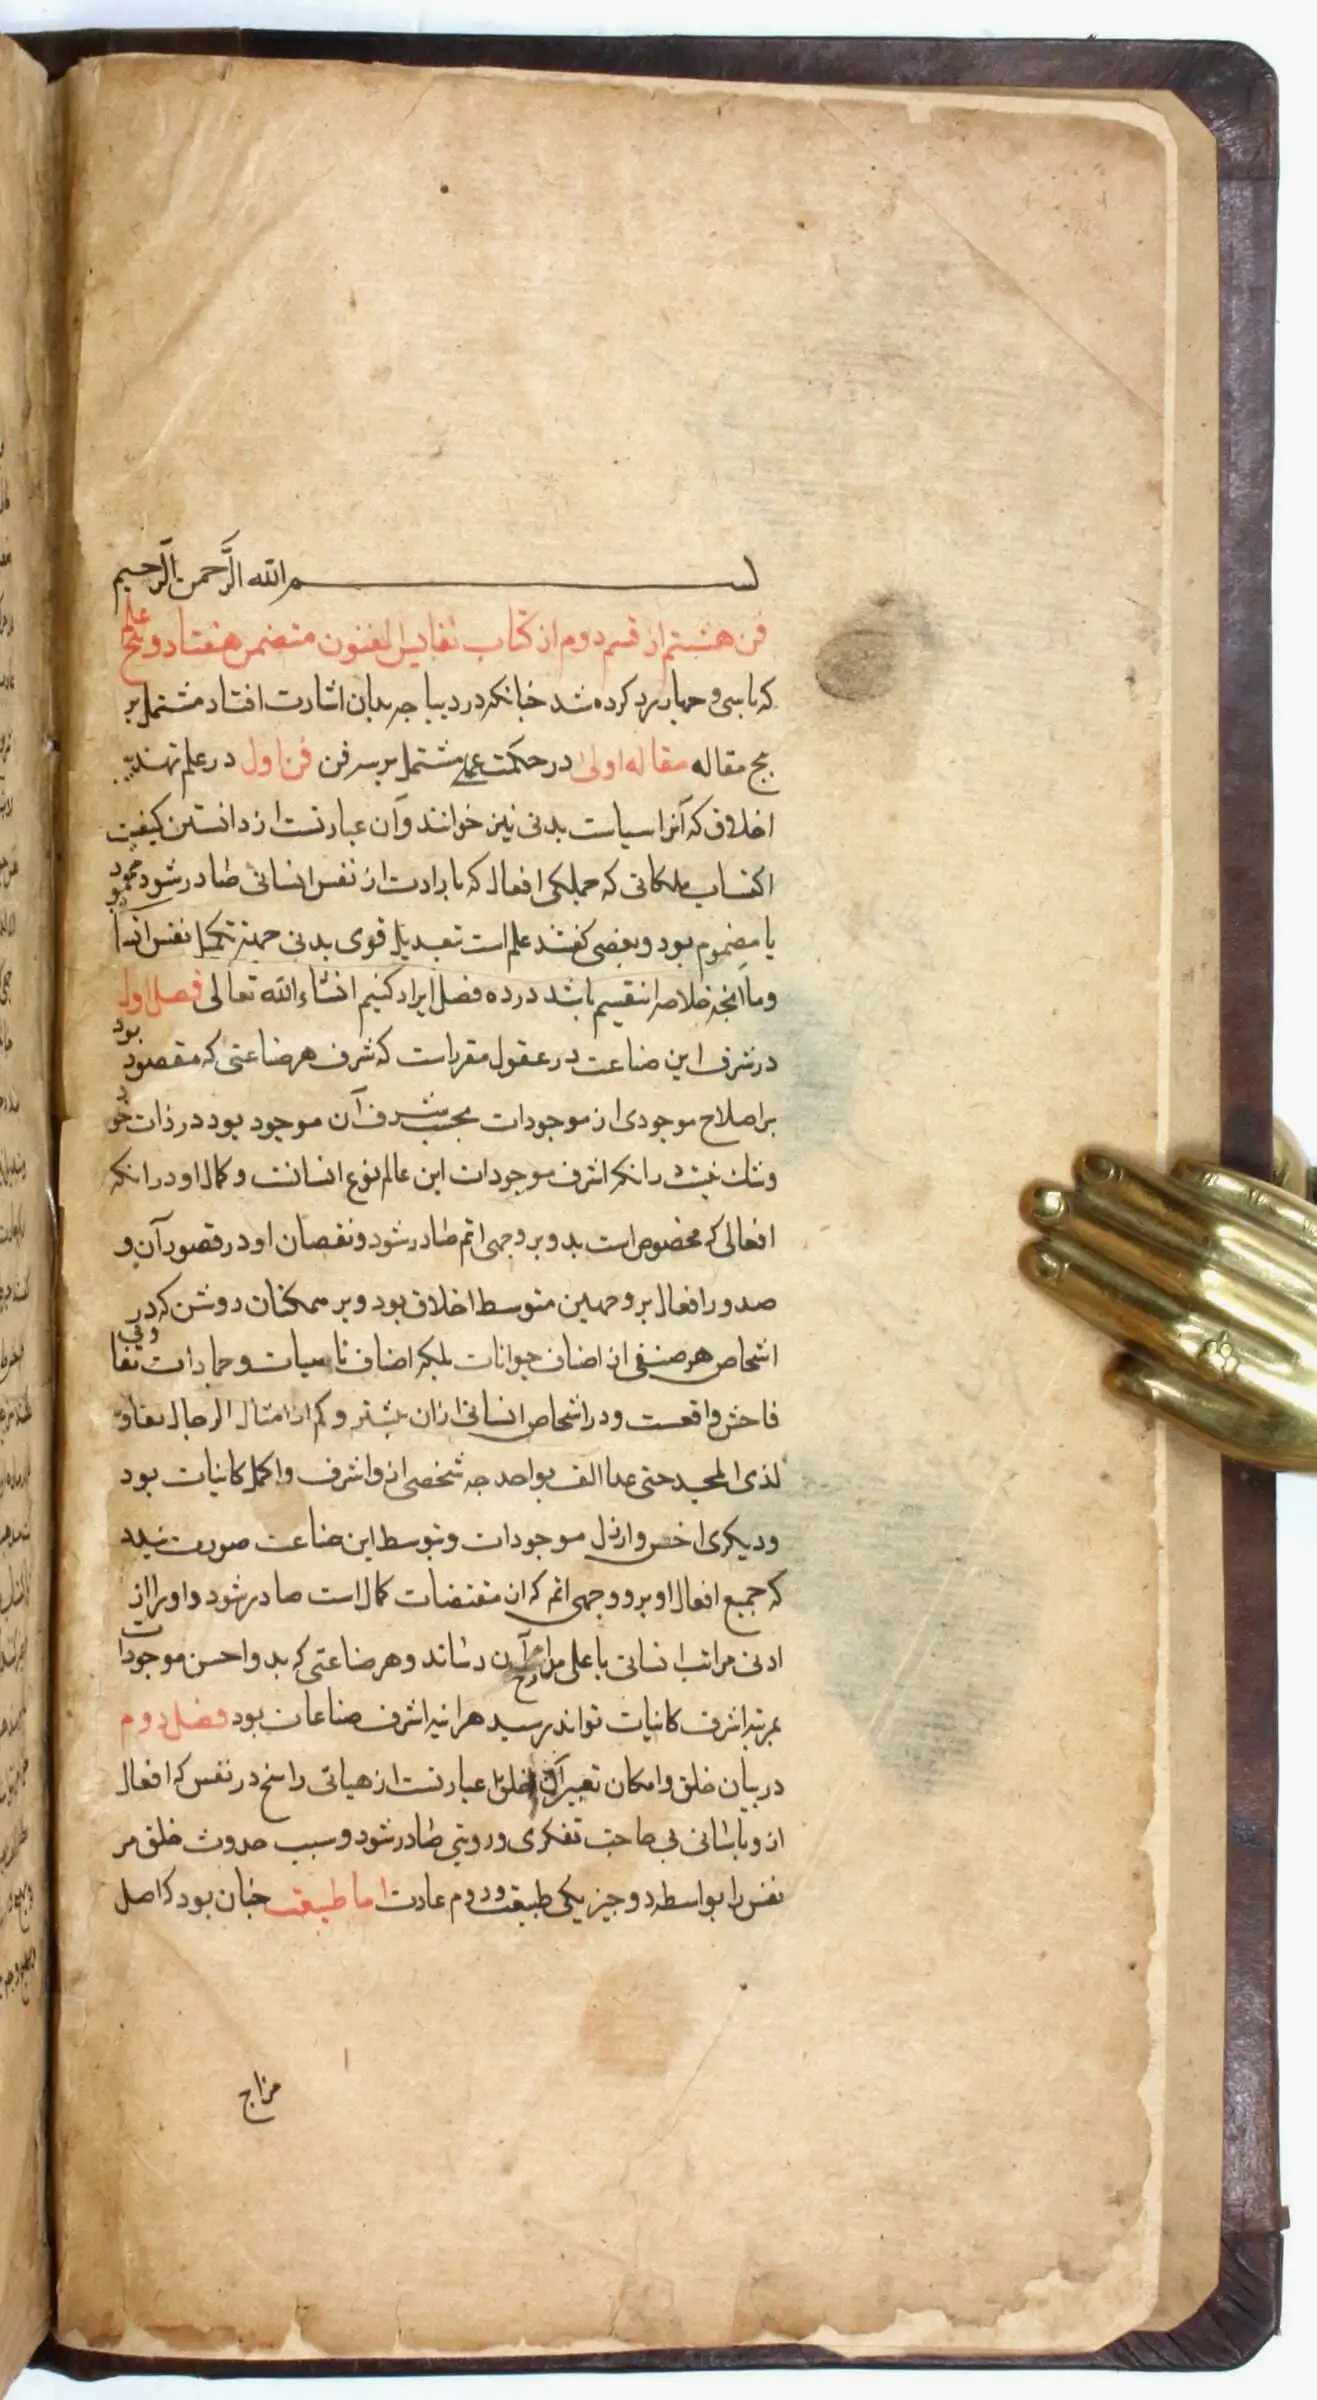 بسم الله الرَّحمن الرَّحیم
فن هشتم از قسم دوم از کتاب نفایس الفنون متضمن هفتاد و پنج علم
که با سی و چهار برد کرده شد چنانکه در دیباجه بدان اشارت افتاد مشتمل بر
پنج مقاله مقاله اولی در حکمت عملی مشتمل بر سه فن فن اول در علم تهذیب
اخلاق که آنرا سیاست بدنی نیز خوانند و آن عبارتست از دانستن کیفیت
اکتساب ملکاتی که جملکی افعال که بارادت از نفس انسانی صادر شود محمود بود
یا مضموم بود و بعضی کفتند علم است تبعدیل قوی بدنی جهة تکمیل نفس انسا
و ما آنچه خلاصه این قسم باشد در ده فصل ایراد کنیم انشاء الله تعالی فصل اول
در شرف این صناعت در عقول مقرر است که شرف هر صناعتی که مقصود بود
بر اصلاح موجودی از موجودات بحسب شرف آن موجود بود در ذات خود
و شک نیست در انکه اشرف موجودات این عالم نوع انسانست و کمال او در انکه
افعالی که مخصوص است بدو بر وجهی اتم صادر شود و نقصان او در قصور آن و
صدور افعال بر وجهین متوسط اخلاق بود و بر همکنان روشن که در
اشخاص هر صنفی از اصناف حیوانات بلکه اصناف نامیات و جمادات تفاوتی
فاحش واقعست و در اشخاص انسانی ازان بیشتر و کم ار امثال الرجال تفاوت
لذی المجد حتی عدا الف بواحد جه شخصی ازو اشرف و اکمل کاینات بود
و دیکری اخص و ارذل موجودات و بتوسط این صناعت صورت بندد
که جمیع افعال او بر و وجهی اتم که ان مقتضات کمال است صادر شود و او را از
ادنی مراتب انسانی باعلی مدارج آن رساند و هر صناعتی که بدو احسن موجودات
بمرتبه اشرف کاینات تواند رسید هراینه اشرف صناعات بود فصل دوم
در بیان خلق و امکان تغییر آن خلق عبارتست از هیاتی راسخ در نفس که افعال
ازو باسانی بی حاجت تفکری و رویتی صادر شود و سبب حدوث خلق مر
نفس را بواسطه دو چیز یکی طبیعت و دوم عادت اما طبیعت چنان بود که اصل
مزاج